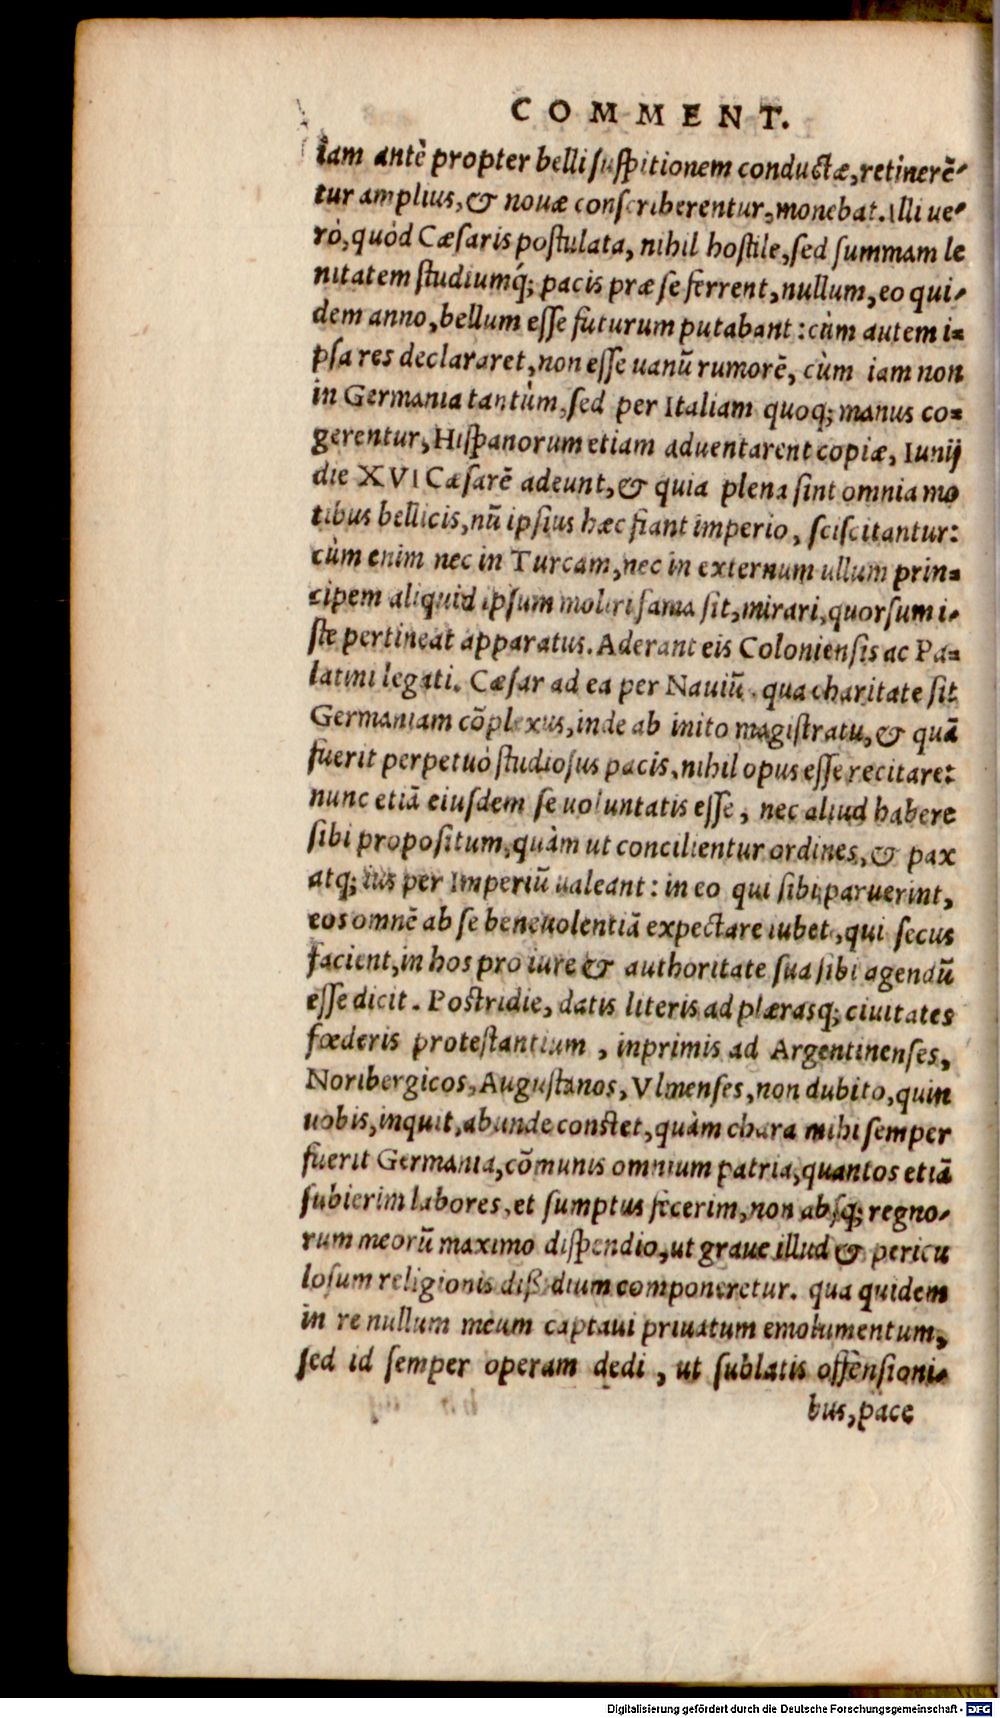 COMMENT.
iam antè propter belli suspitionem conductæ, retinerē-
tur amplius, & nouæ conscriberentur, monebat. Illi ue-
rò, quòd Cæsaris postulata, nihil hostile, sed summam le
nitatem studiumq́; pacis præ se ferrent, nullum, eo qui-
dem anno, bellum esse futurum putabant: cùm autem i-
psa res declararet, non esse uanū rumorē, cùm iam non
in Germania tantùm, sed per Italiam quoq; manus co-
gerentur, Hispanorum etiam aduentarent copiæ, Iunij
die XVI Cæsarē adeunt, & quia plena sint omnia mo
tibus bellicis, nū ipsius hæc fiant imperio, sciscitantur:
cùm enim nec in Turcam, nec in externum ullum prin-
cipem aliquid ipsum moliri fama sit, mirari, quorsum i-
ste pertineat apparatus. Aderant eis Coloniensis ac Pa-
latini legati. Cæsar ad ea per Nauiū. qua charitate sit
Germaniam cōplexus, inde ab inito magistratu, & quā
fuerit perpetuò studiosus pacis, nihil opus esse recitare:
nunc etiā eiusdem se uoluntatis esse, nec aliud habere
sibi propositum, quàm ut concilientur ordines, & pax
atq; ius per Imperiū ualeant: in eo qui sibi paruerint,
eos omnē ab se beneuolentiā expectare iubet, qui secus
facient, in hos pro iure & authoritate sua sibi agendū
esse dicit. Postridie, datis literis ad plærasq; ciuitates
fœderis protestantium, inprimis ad Argentinenses,
Noribergicos, Augustanos, Vlmenses, non dubito, quin
uobis, inquit, abunde constet, quàm chara mihi semper
fuerit Germania, cōmunis omnium patria, quantos etiā
subierim labores, et sumptus fecerim, non absq; regno-
rum meorū maximo dispendio, ut graue illud & pericu
losum religionis dißidium componeretur. qua quidem
in re nullum meum captaui priuatum emolumentum,
sed id semper operam dedi, ut sublatis offensioni-
bus, pace
Digitalisierung gefördert durch die Deutsche Forschungsgemeinschaft - DFG